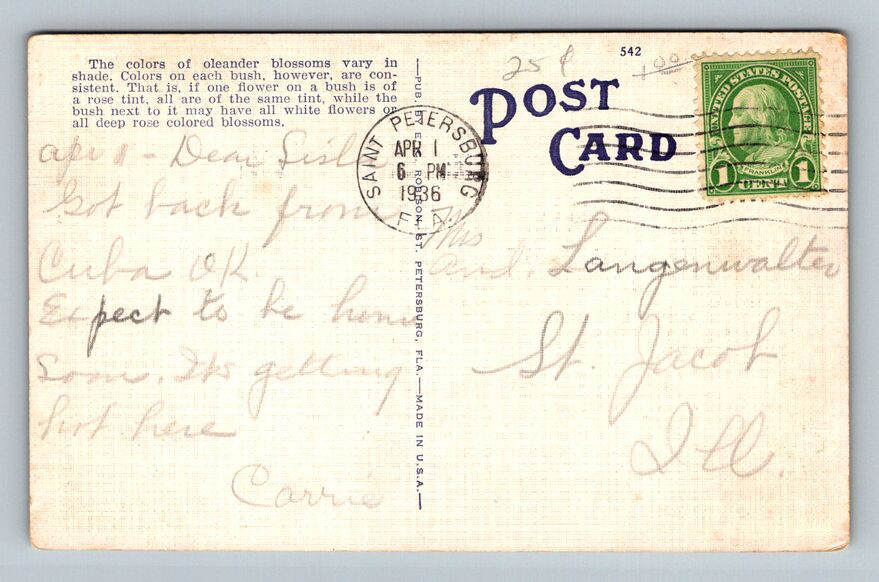 The colors of oleander blossoms vary in
shade. Colors on each bush, however, are con-
sistent. That is, if one flower on a bush is of
a rose tint, all are of the same tint, while the
bush next to it may have all white flowers or
all deep rose colored blossoms.
Dear Sister
Got back from
Cuba OK.
Expect to be home
soon. Its getting
hot here
Carrie
SAINT PETERSBURG
APR 1
6 PM
1936
FLA.
ST. PETERSBURG, FLA.—MADE IN U.S.A.
25¢
542
1.00
POST
CARD
UNITED STATES POSTAGE
FRANKLIN
1 CENT 1
Mrs
And. Langenwalter
St. Jacob
Ill.